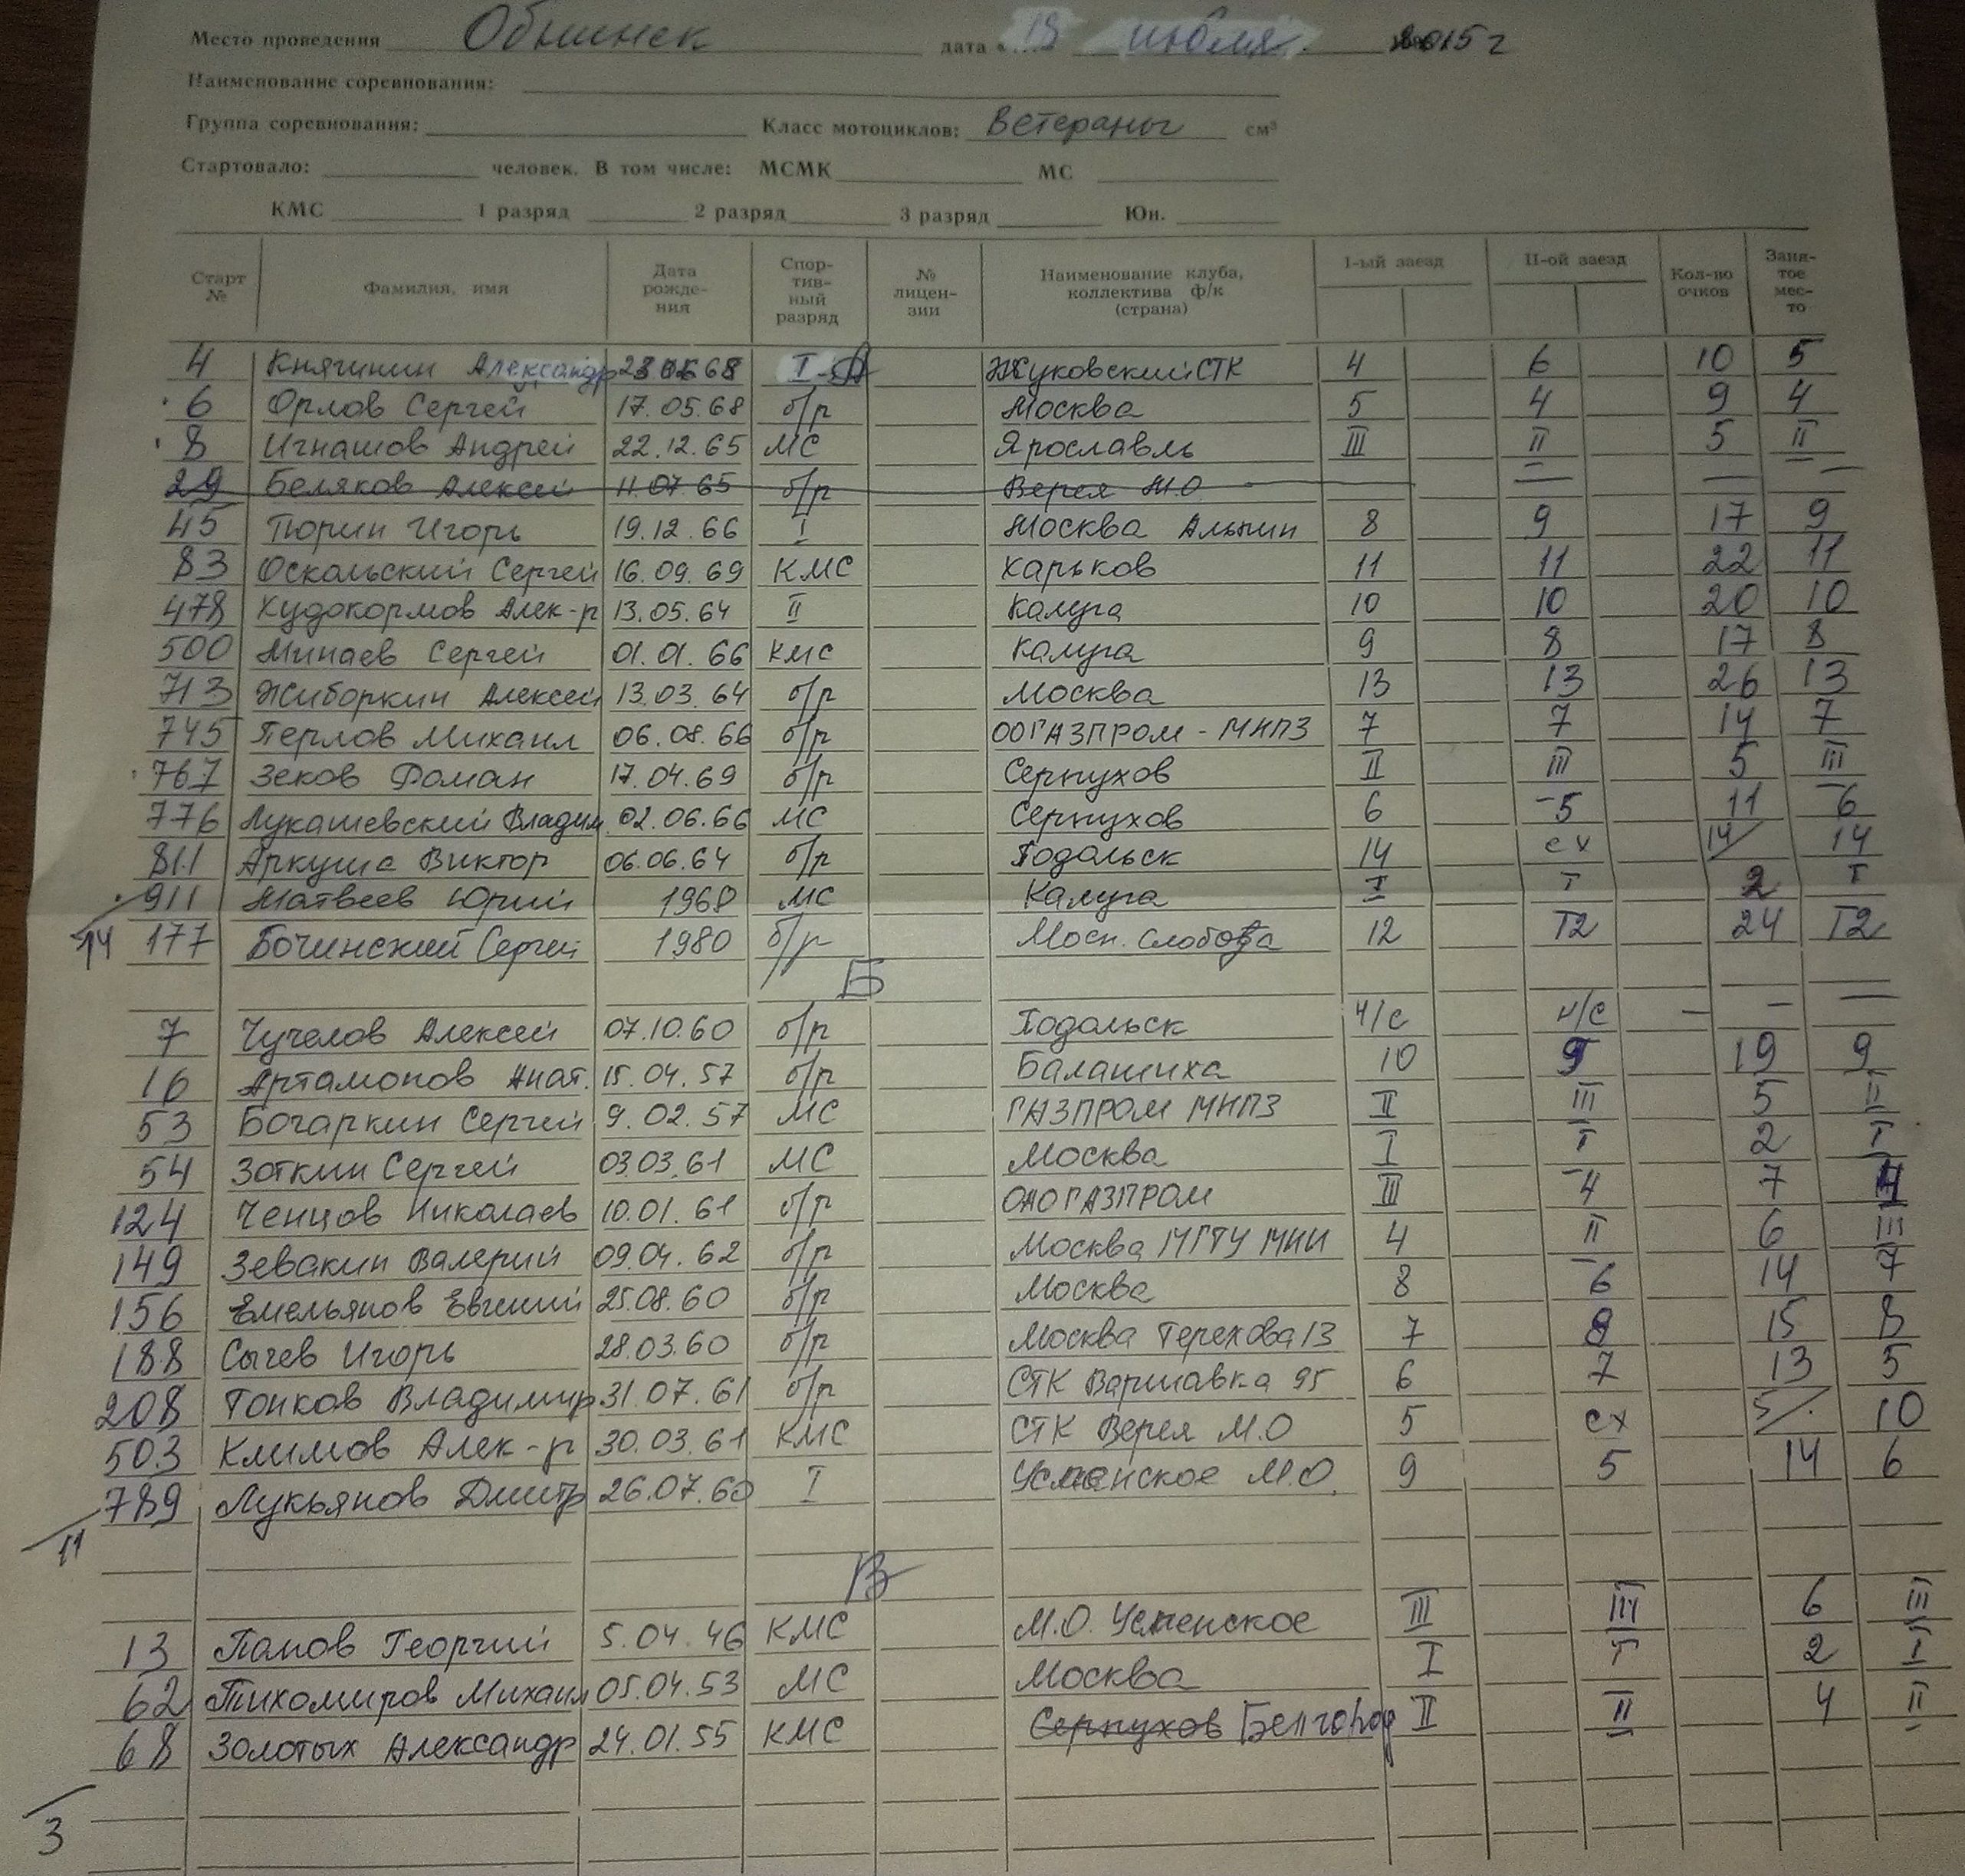 Место проведения Обнинск дата « 19 июля 2015 г
Наименование соревнования:
Группа соревнования: Класс мотоциклов: Ветераны см³
Стартовало: человек. В том числе: МСМК МС
КМС 1 разряд 2 разряд 3 разряд Юн.
Старт № Фамилия, имя Дата рожде- ния Спор- тив- ный разряд № лицен- зии Наименование клуба, коллектива ф/к (страна) I-ый заезд II-ой заезд Кол-во очков Заня- тое мес- то
4 Княгинин Александр 68 I А Жуковский СТК 4 6 10 5
6 Орлов Сергей 17.05.68 б/р Москва 5 4 9 4
8 Игнашов Андрей 22.12.65 МС Ярославль III II 5 II
29 Беляков Алексей 11.07.65 б/р Верея М.О — — —
45 Тюрин Игорь 19.12.66 I Москва Альпин 8 9 17 9
83 Оскольский Сергей 16.09.69 КМС Харьков 11 11 22 11
478 Худокормов Алек-р 13.05.64 II Калуга 10 10 20 10
500 Минаев Сергей 01.01.66 КМС Калуга 9 8 17 8
713 Жиборкин Алексей 13.03.64 б/р Москва 13 13 26 13
745 Перлов Михаил 06.08.66 б/р ООГАЗПРОМ - МНПЗ 7 7 14 7
767 Зеков Роман 17.04.69 б/р Серпухов II III 5 III
776 Лукашевский Владим 02.06.66 МС Серпухов 6 5 11 6
811 Аркуша Виктор 06.06.64 б/р Подольск 14 сх 14/ 14
911 Матвеев Юрий 1968 МС Калуга I I 2 I
14 177 Бочинский Сергей 1980 б/р Мосн. Слобода 12 12 24 12
Б
7 Чучелов Алексей 07.10.60 б/р Подольск н/с н/с — — —
16 Артамонов Анат. 15.04.57 б/р Балашиха 10 9 19 9
53 Богаркин Сергей 9.02.57 МС ГАЗПРОМ МНПЗ II III 5 II
54 Зоткин Сергей 03.03.61 МС Москва I I 2 I
124 Ченцов Николаев 10.01.61 б/р ОАО ГАЗПРОМ III 4 7 4
149 Зевакин Валерий 09.04.62 б/р Москва МГТУ МИИ 4 II 6 III
156 Емельянов Евгений 25.08.60 б/р Москва 8 6 14 7
188 Сычев Игорь 28.03.60 б/р Москва Терехова 13 7 8 15 8
208 Тонков Владимир 31.07.61 б/р СТК Варшавка 95 6 7 13 5
503 Климов Алек-р 30.03.61 КМС СТК Верея М.О 5 сх 5/ 10
789 Лукьянов Дмитр 26.07.60 I Успенское М.О. 9 5 14 6
11
В
13 Панов Георгий 5.04.46 КМС М.О. Успенское III III 6 III
62 Тихомиров Михаил 05.04.53 МС Москва I I 2 I
68 Золотых Александр 24.01.55 КМС Серпухов Белгород II II 4 II
3